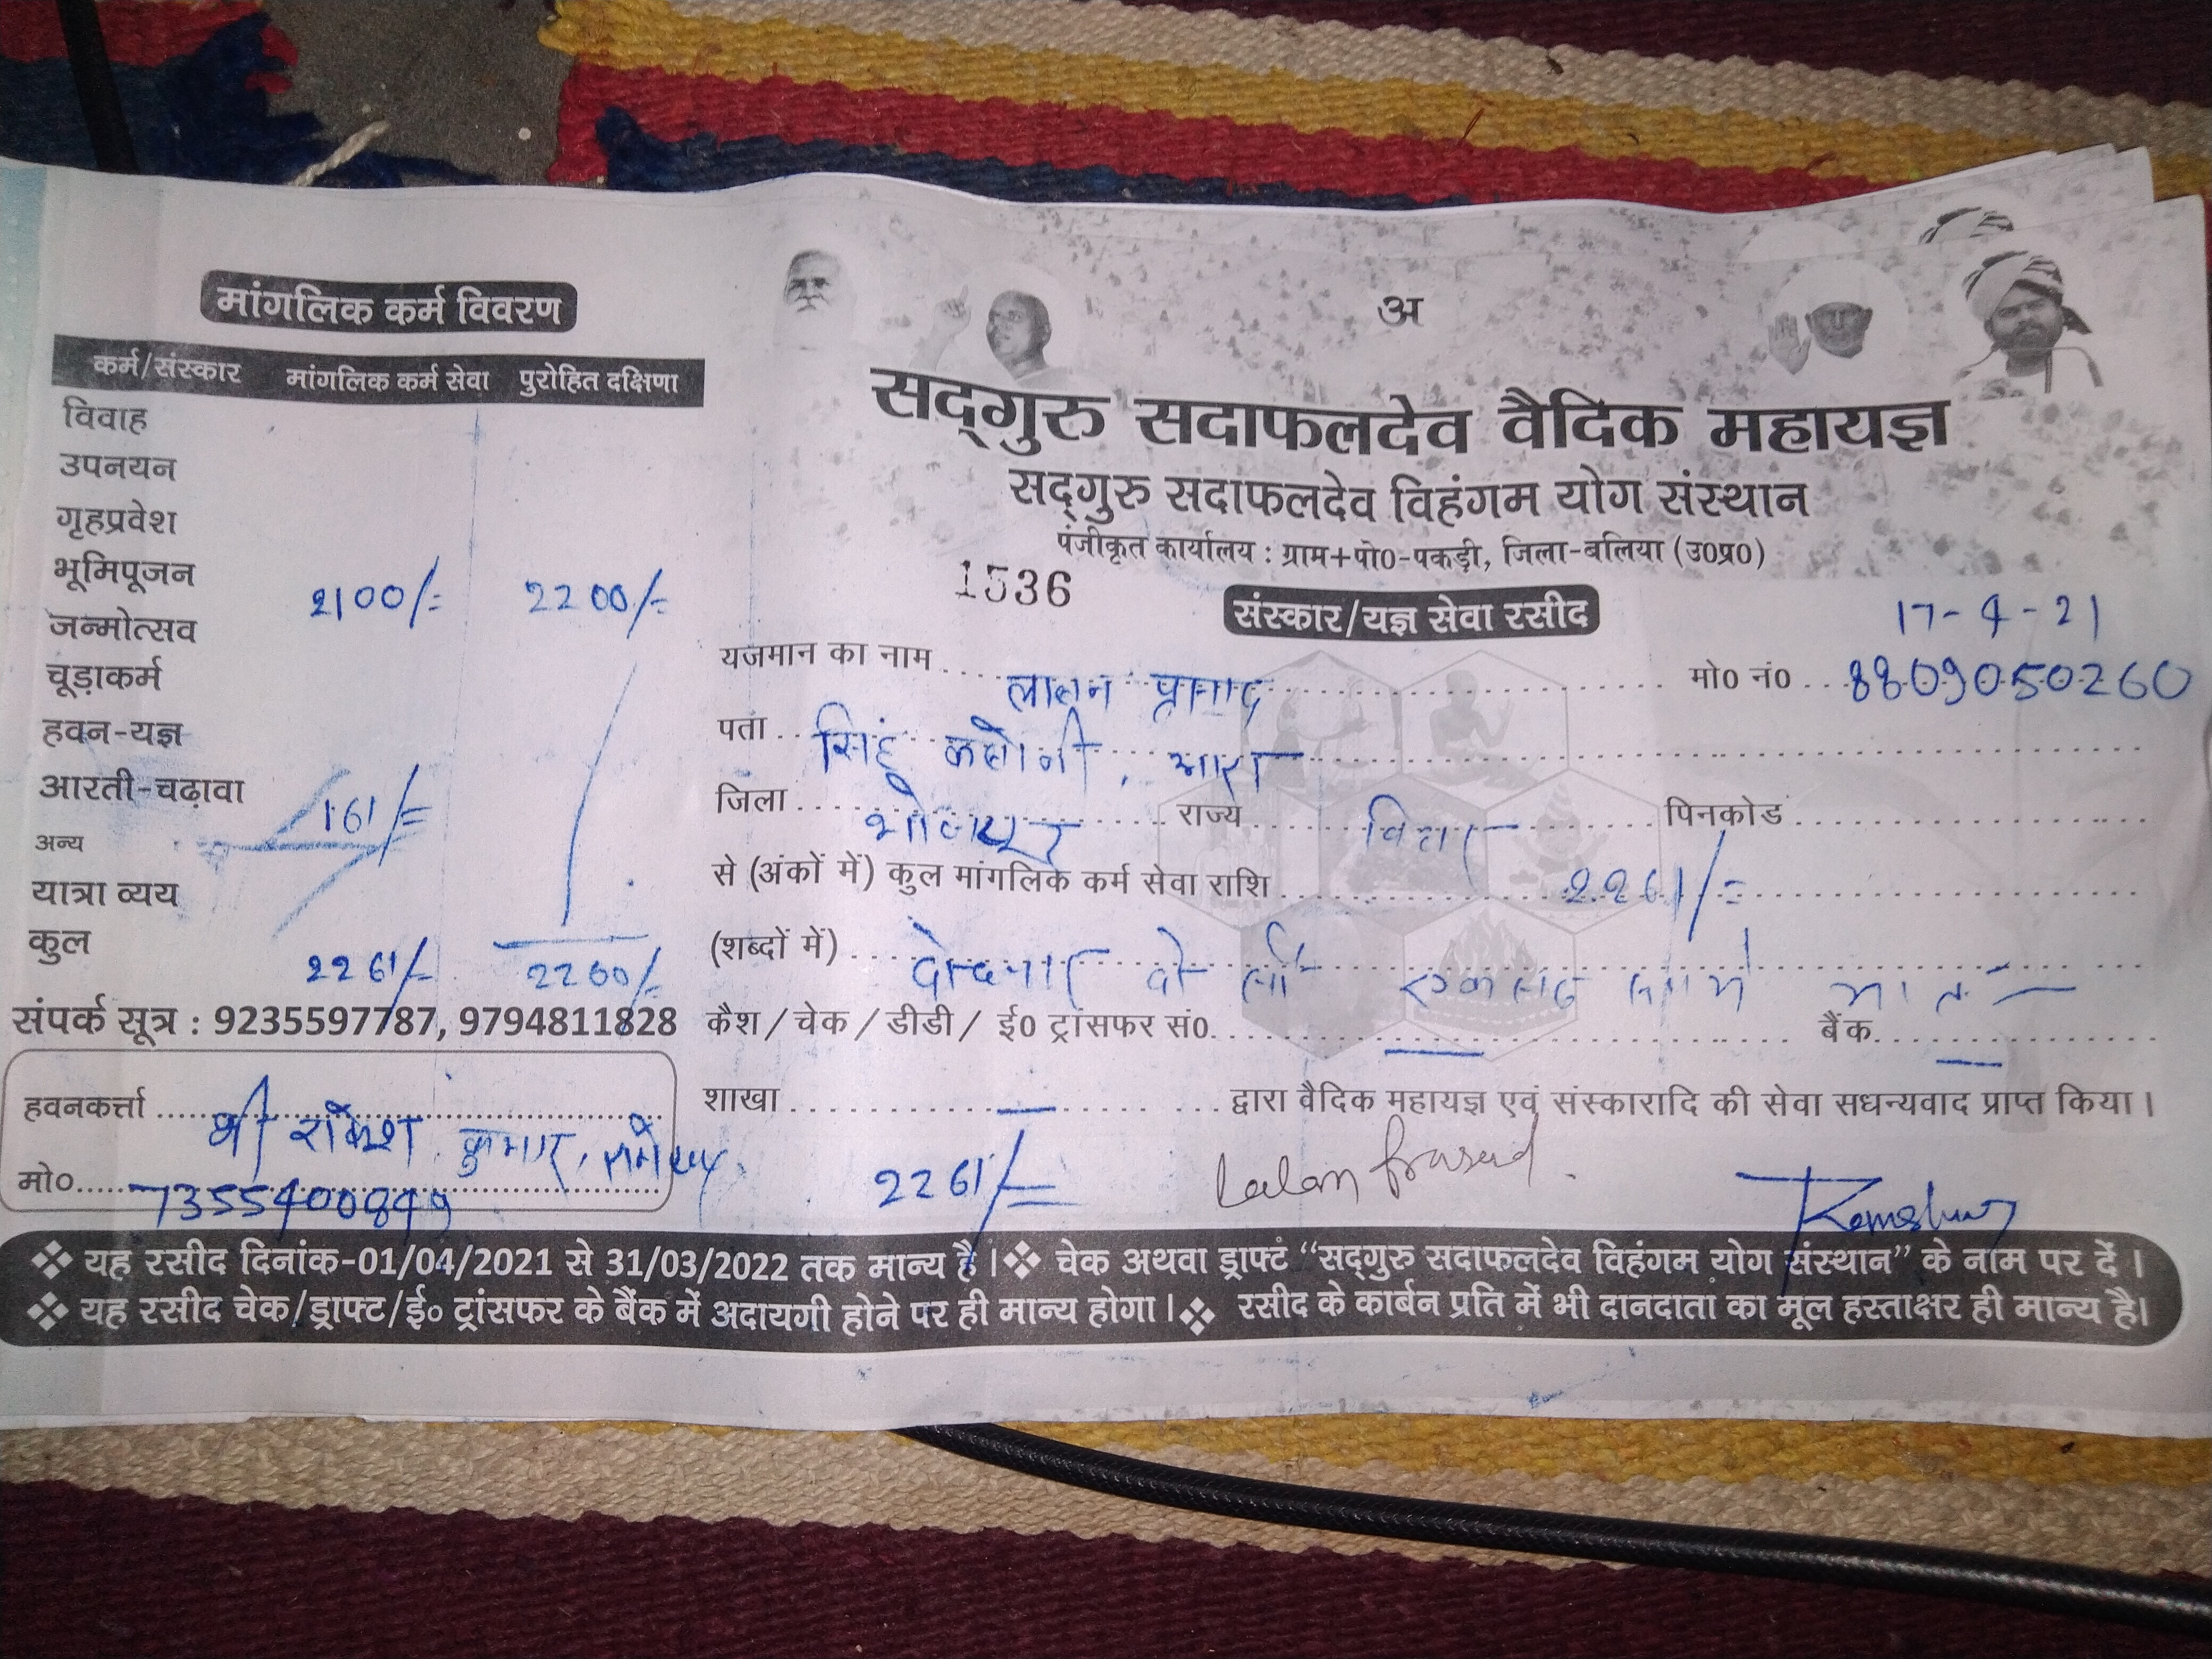 मांगलिक कर्म विवरण
कर्म/संस्कार मांगलिक कर्म सेवा पुरोहित दक्षिणा
विवाह
उपनयन
गृहप्रवेश
भूमिपूजन 2100/= 2200/=
जन्मोत्सव
चूड़ाकर्म
हवन-यज्ञ
आरती-चढ़ावा 161/=
अन्य
यात्रा व्यय
कुल 2261/= 2200/=
संपर्क सूत्र : 9235597787, 9794811828
हवनकर्त्ता श्री राकेश कुमार,
मो० 7355400849
अ
सद्गुरु सदाफलदेव वैदिक महायज्ञ
सद्गुरु सदाफलदेव विहंगम योग संस्थान
पंजीकृत कार्यालय : ग्राम+पो0-पकड़ी, जिला-बलिया (उ0प्र0)
1536
संस्कार/यज्ञ सेवा रसीद
17-4-21
यजमान का नाम लालन प्रसाद मो0 नं0 8809050260
पता सिंह कलोनी, आरा
जिला भोजपुर राज्य बिहार पिनकोड
से (अंकों में) कुल मांगलिक कर्म सेवा राशि 2261/=
(शब्दों में) दो सौ एकसठ मात्र
कैश / चेक / डीडी / ई0 ट्रांसफर सं0. बैंक
शाखा द्वारा वैदिक महायज्ञ एवं संस्कारादि की सेवा सधन्यवाद प्राप्त किया।
2261/= Lalan Prasad
❖ यह रसीद दिनांक-01/04/2021 से 31/03/2022 तक मान्य है। ❖ चेक अथवा ड्राफ्ट “सद्गुरु सदाफलदेव विहंगम योग संस्थान” के नाम पर दें।
❖ यह रसीद चेक/ड्राफ्ट/ई० ट्रांसफर के बैंक में अदायगी होने पर ही मान्य होगा। ❖ रसीद के कार्बन प्रति में भी दानदाता का मूल हस्ताक्षर ही मान्य है।